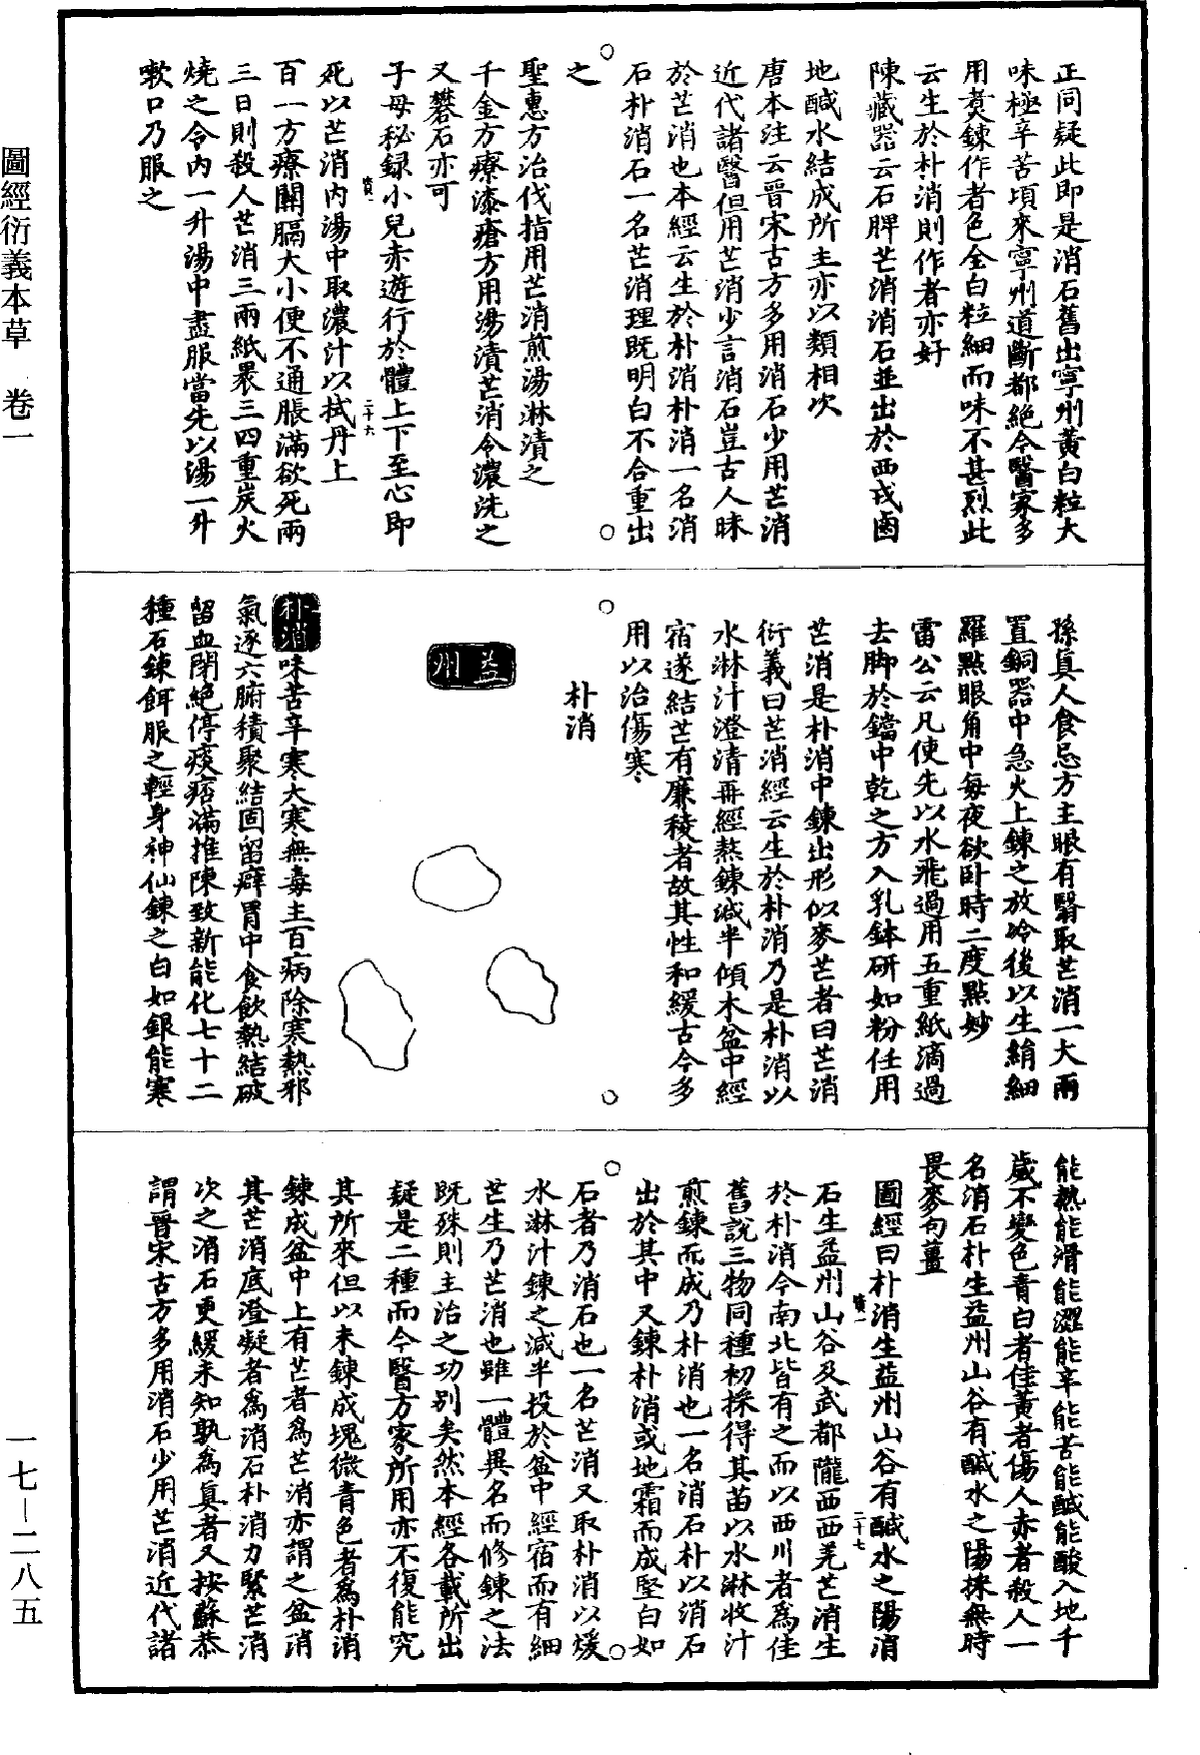 正同疑此即是消石舊出寧州黃白粒大
味極辛苦頃來寧州道斷都絕今醫家多
用煑鍊作者色全白粒細而味不甚烈此
云生於朴消則作者亦好
陳藏器云石脾芒消消石並出於西戎鹵
地鹹水結成所主亦以類相次
唐本注云晉宋古方多用消石少用芒消
近代諸醫但用芒消少言消石豈古人昧
於芒消也本經云生於朴消朴消一名消
石朴消石一名芒消理既明白不合重出
之
聖惠方治伐指用芒消煎湯淋漬之
千金方療漆瘡方用湯漬芒消令濃洗之
又礬石亦可
子母秘録小兒赤遊行於體上下至心即
死以芒消內湯中取濃汁以拭丹上
百一方療關膈大小便不通脹滿欲死兩
三日則殺人芒消三兩紙裹三四重炭火
燒之令內一升湯中盡服當先以湯一升
嗽口乃服之
二十六
孫真人食忌方主眼有瞖取芒消一大兩
置銅器中急火上鍊之放冷後以生絹細
羅點眼角中每夜欲卧時二度點妙
雷公云凡使先以水飛過用五重紙滴過
去脚於鐺中乾之方入乳鉢研如粉任用
芒消是朴消中鍊出形似麥芒者曰芒消
衍義曰芒消經云生於朴消乃是朴消以
水淋汁澄清再經熬鍊減半傾木盆中經
宿遂結芒有廉稜者故其性和緩古今多
用以治傷寒
朴消
益州
朴消味苦辛寒大寒無毒主百病除寒熱邪
氣逐六腑積聚結固留癖胃中食飲熱結破
留血閉絕停痰痞滿推陳致新能化七十二
種石鍊餌服之輕身神仙鍊之白如銀能寒
能熱能滑能澀能辛能苦能鹹能酸入地千
歲不變色青白者佳黃者傷人赤者殺人一
名消石朴生益州山谷有鹹水之陽採無時
畏麥句薑
圖經曰朴消生益州山谷有鹹水之陽消
石生益州山谷及武都隴西西羌芒消生
於朴消今南北皆有之而以西川者為佳
舊說三物同種初採得其苗以水淋收汁
煎鍊而成乃朴消也一名消石朴以消石
出於其中又鍊朴消或地霜而成堅白如
石者乃消石也一名芒消又取朴消以煖
水淋汁鍊之減半投於盆中經宿而有細
芒生乃芒消也雖一體異名而修鍊之法
既殊則主治之功別矣然本經各載所出
疑是二種而今醫方家所用亦不復能究
其所來但以未鍊成塊微青色者為朴消
鍊成盆中上有芒者為芒消亦謂之盆消
其芒消底澄凝者為消石朴消力緊芒消
次之消石更緩未知孰為真者又按蘇恭
謂晉宋古方多用消石少用芒消近代諸
二十七
圖經衍義本草　卷一
一七—二八五